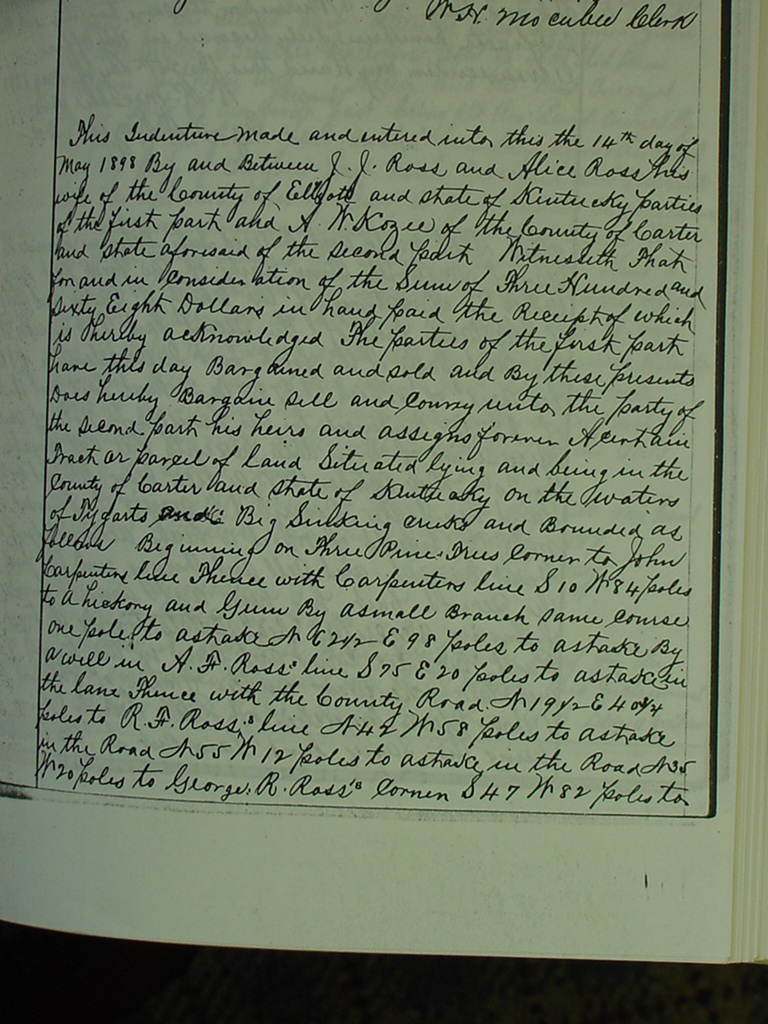 W. H. Mocabee Clerk
This Indenture Made and entered into this the 14th day of
May 1898 By and Between J. J. Ross and Alice Ross his
wife of the County of Elliott and state of Kentucky parties
of the first part and A. W. Kozee of the County of Carter
and state aforisaid of the second part Witnesseth That
for and in consideration of the Sum of Three Hundred and
Sixty Eight Dollars in hand paid the Receipt of which
is hereby acknowledged The parties of the first part
have this day Bargained and sold and By these presents
Does hereby Bargain sell and convey unto the party of
the second part his heirs and assigns forever A certain
Tract or parcel of land Situated lying and being in the
County of Carter and state of Kentucky on the waters
of Tygarts and Big Sinking creeks and Bounded as
follows Beginning on Three Pine Trees Corner to John
Carpenters line Thence with Carpenters line S 10 W 84 poles
to a hickory and Gum By a small Branch same course
one pole to a stake N E 2 1/2 E 98 poles to a stake By
a well in A. F. Ross's line S 75 E 20 poles to a stake in
the lane Thence with the County Road N 19 1/2 E 40 1/4
poles to R. F. Ross's line N 42 W 58 poles to a stake
in the Road N 55 W 12 poles to a stake in the Road N 35
W 20 poles to George R. Ross's Corner S 47 W 82 poles to